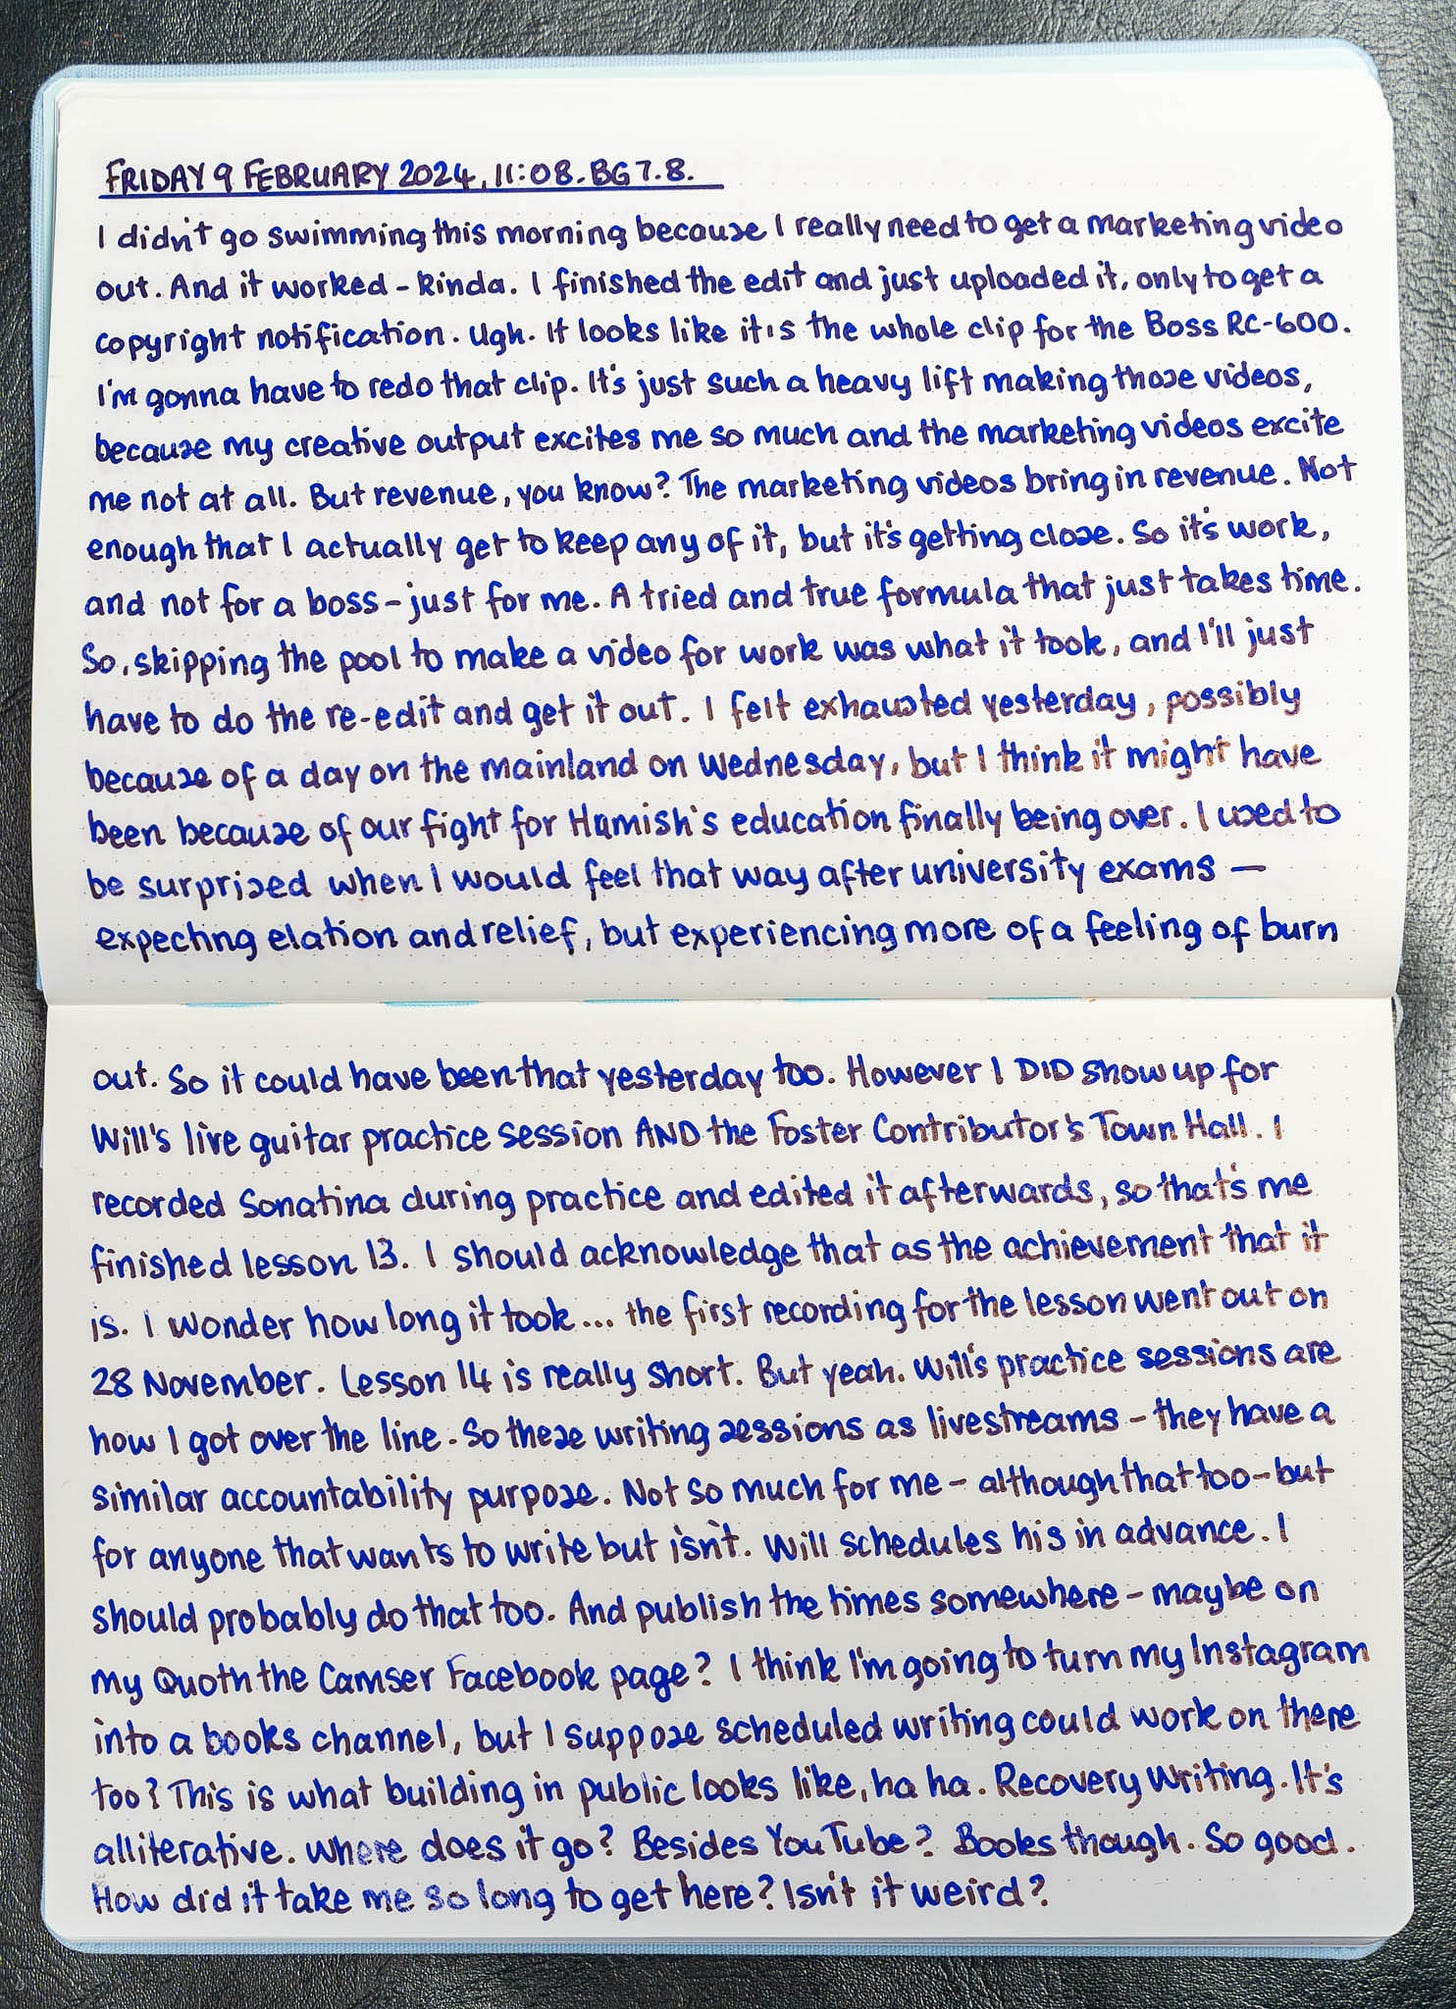 FRIDAY 9 FEBRUARY 2024, 11:08. BG 7.8.
I didn't go swimming this morning because I really need to get a marketing video
out. And it worked - kinda. I finished the edit and just uploaded it, only to get a
copyright notification. Ugh. It looks like it's the whole clip for the Boss RC-600.
I'm gonna have to redo that clip. It's just such a heavy lift making those videos,
because my creative output excites me so much and the marketing videos excite
me not at all. But revenue, you know? The marketing videos bring in revenue. Not
enough that I actually get to keep any of it, but it's getting close. So it's work,
and not for a boss - just for me. A tried and true formula that just takes time.
So, skipping the pool to make a video for work was what it took, and I'll just
have to do the re-edit and get it out. I felt exhausted yesterday, possibly
because of a day on the mainland on Wednesday, but I think it might have
been because of our fight for Hamish's education finally being over. I used to
be surprised when I would feel that way after university exams —
expecting elation and relief, but experiencing more of a feeling of burn
out. So it could have been that yesterday too. However I DID show up for
Will's live guitar practice session AND the Foster Contributor's Town Hall. I
recorded Sonatina during practice and edited it afterwards, so that's me
finished lesson 13. I should acknowledge that as the achievement that it
is. I wonder how long it took... the first recording for the lesson went out on
28 November. Lesson 14 is really short. But yeah. Will's practice sessions are
how I got over the line. So these writing sessions as livestreams - they have a
similar accountability purpose. Not so much for me - although that too - but
for anyone that wants to write but isn't. Will schedules his in advance. I
should probably do that too. And publish the times somewhere - maybe on
my Quoth the Camser Facebook page? I think I'm going to turn my Instagram
into a books channel, but I suppose scheduled writing could work on there
too? This is what building in public looks like, ha ha. Recovery Writing. It's
alliterative. Where does it go? Besides YouTube? Books though. So good.
How did it take me so long to get here? Isn't it weird?